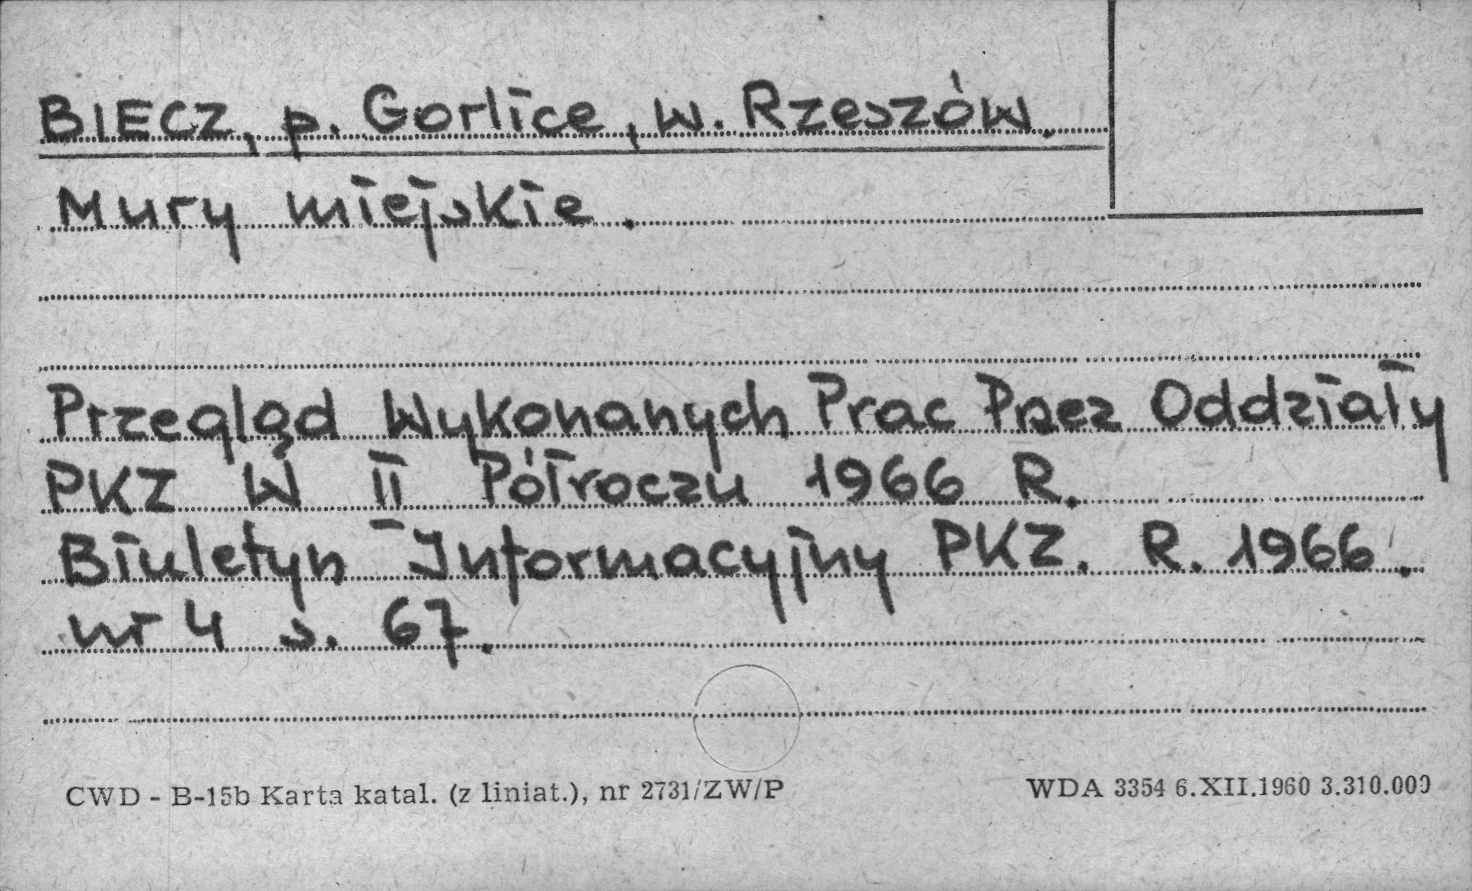 BIECZ, p. Gorlice, w. Rzeszów.
Mury miejskie.
Przegląd Wykonanych Prac Przez Oddziały
PKZ W II Półroczu 1966 R.
Biuletyn Informacyjny PKZ. R. 1966.
nr 4 s. 67.
CWD - B-15b Karta katal. (z liniat.), nr 2731/ZW/P
WDA 3354 6.XII.1960 3.310.000